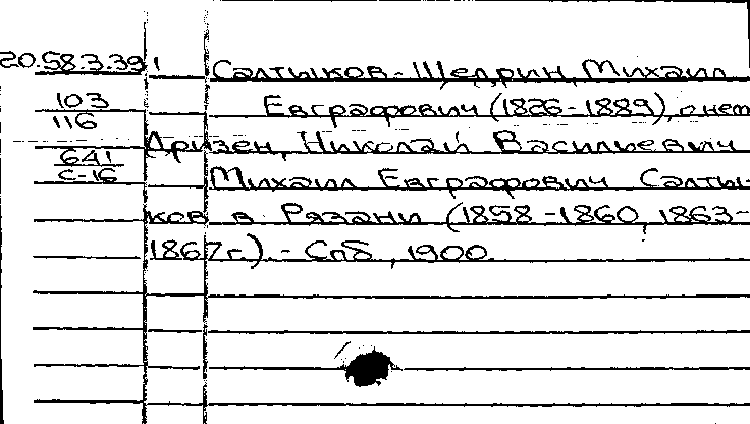 20.58.3.39
Салтыков-Щедрин, Михаил
103
Евграфович (1826-1889), о нем
116
Дризен, Николай Васильевич
641
С-16
Михаил Евграфович Салты-
ков в Рязани (1858-1860, 1863-
1867г.).- Спб, 1900.